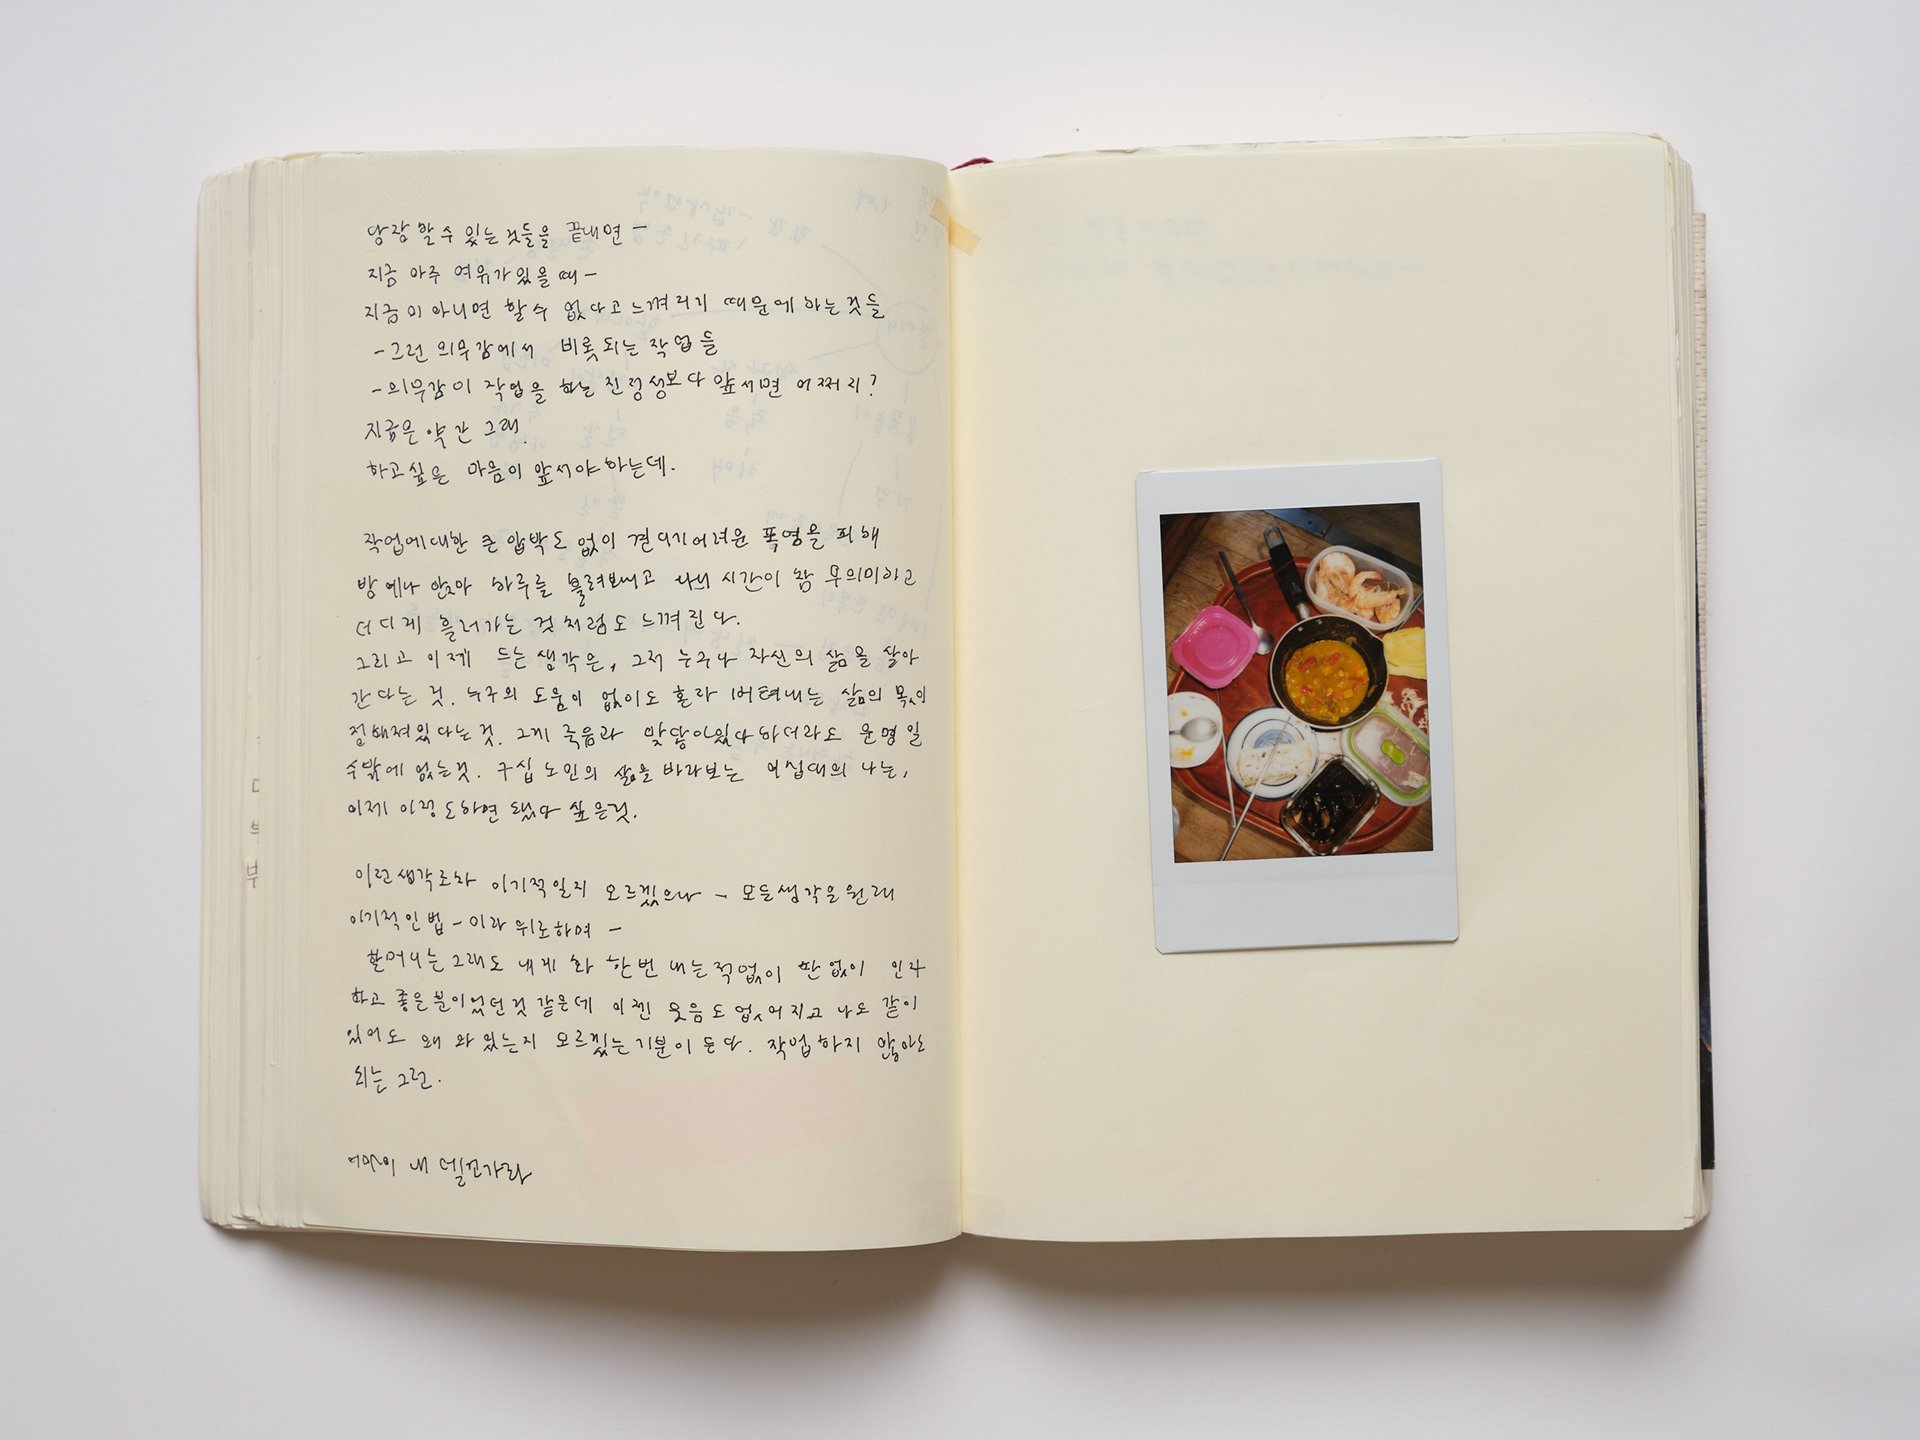 당장 할 수 있는 것들을 끝내면 –
지금 아주 여유가 있을 때 –
지금이 아니면 할 수 없다고 느껴지기 때문에 하는 것들
- 그런 의무감에서 비롯되는 작업들
- 의무감이 작업을 하는 진정성보다 앞서면 어쩌지?
지금은 약간 그래.
하고싶은 마음이 앞서야 하는데.
작업에 대한 큰 압박도 없이 견디기 어려운 폭염을 피해
방에나 앉아 하루를 흘려보내고 나니 시간이 참 무의미하고
더디게 흘러가는 것처럼도 느껴진다.
그리고 이제 드는 생각은, 그저 누구나 자신의 삶을 살아
간다는 것. 누구의 도움이 없이도 홀라 버텨내는 삶의 몫이
정해져있다는 것. 그게 죽음과 맞닿아있다 하더라도 운명일
수밖에 없는 것. 구십 노인의 삶을 바라보는 이십대의 나는,
이제 이정도하면 됐다 싶은 것.
이런 생각조차 이기적일지 모르겠으나 – 모든 생각은 원래
이기적인 법 – 이라 위로하며 –
할머니는 그래도 내게 화 한번 내는 적 없이 짠 없이 인자
하고 좋은 분이었던 것 같은데 이젠 웃음도 없어지고 나도 같이
있어도 왜 와 있는지 모르겠는 기분이 든다. 작업하지 않아도
되는 그런.
내 델꼬가라
부